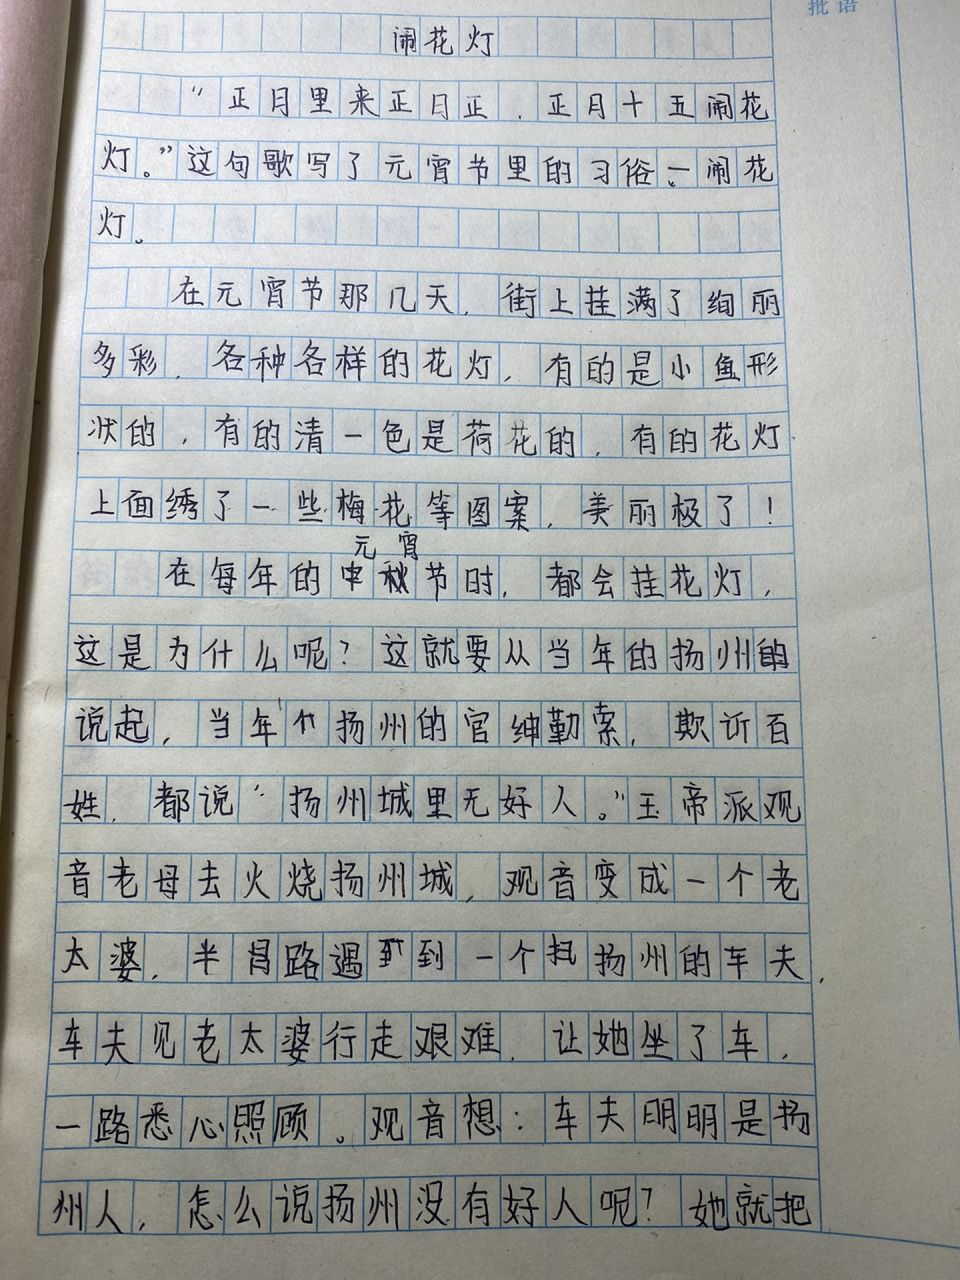 批语
闹花灯
“正月里来正月正，正月十五闹花
灯。”这句歌写了元宵节里的习俗、闹花
灯。
在元宵节那几天，街上挂满了绚丽
多彩，各种各样的花灯，有的是小鱼形
状的，有的清一色是荷花的，有的花灯
上面绣了一些梅花等图案，美丽极了！
元宵
在每年的节时，都会挂花灯，
这是为什么呢？这就要从当年的扬州
说起，当年扬州的官绅勒索，欺诉百
姓，都说“扬州城里无好人。”玉帝派观
音老母去火烧扬州城，观音变成一个老
太婆，半路遇到一个扬州的车夫，
车夫见老太婆行走艰难，让她坐了车，
一路悉心照顾。观音想：车夫明明是扬
州人，怎么说扬州没有好人呢？她就把